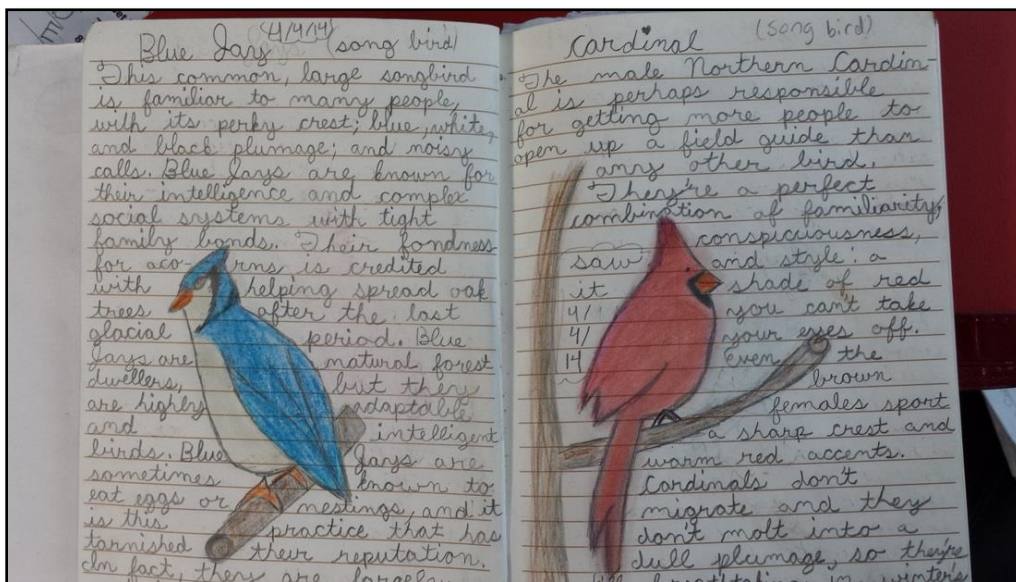 Blue Jay 4/4/14 (song bird)
This common, large songbird
is familiar to many people,
with its perky crest; blue, white,
and black plumage; and noisy
calls. Blue Jays are known for
their intelligence and complex
social systems with tight
family bonds. Their fondness
for aco- rns is credited
with helping spread oak
trees after the last
glacial period. Blue
Jays are natural forest
dwellers, but they
are highly adaptable
and intelligent
birds. Blue Jays are
sometimes known to
eat eggs or nestings, and it
is this practice that has
tarnished their reputation.
In fact, they are largely
Cardinal (song bird)
The male Northern Cardin-
al is perhaps responsible
for getting more people to
open up a field guide than
any other bird.
They're a perfect
combination of familiarity,
conspicuousness,
and style: a
shade of red
you can't take
your eyes off.
Even the
brown
females sport
a sharp crest and
warm red accents.
Cardinals don't
migrate and they
don't molt into a
dull plumage, so they're
breathtaking in winter's
saw
it
4/
4/
14